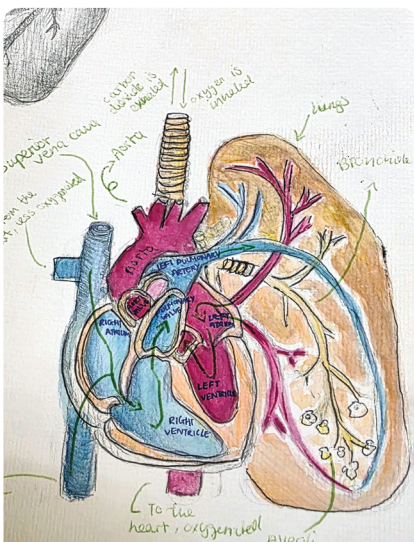 carbon
dioxide is
exhaled
oxygen is
inhaled
lungs
Superior
vena cava
Aorta
Bronchiole
from the
less oxygenated
AORTA
LEFT PULMONARY
ARTERY
PULMONARY
VALVE
RIGHT
ATRIUM
LEFT
ATRIUM
LEFT
VENTRICLE
RIGHT
VENTRICLE
To the
heart, oxygenated
Alveoli